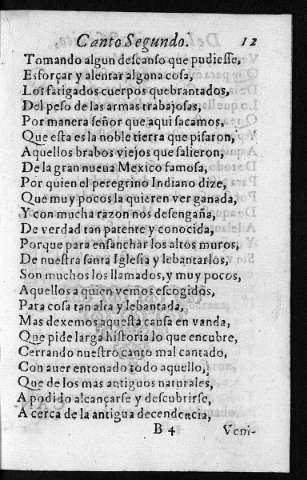 Canto Segundo. 12
Tomando algun descanso que pudiesse,
Esforçar y alentar alguna cosa,
Los fatigados cuerpos quebrantados,
Del peso de las armas trabajosas,
Por manera señor que aqui sacamos,
Que esta es la noble tierra que pisaron,
Aquellos brabos viejos que salieron,
De la gran nueua Mexico famosa,
Por quien el peregrino Indiano dize,
Que muy pocos la quieren ver ganada,
Y con mucha razon nos desengaña,
De verdad tan patente y conocida,
Porque para ensanchar los altos muros,
De nuestra santa Iglesia y lebantarlos,
Son muchos los llamados, y muy pocos,
Aquellos a quien vemos escogidos,
Para cosa tan alta y lebantada,
Mas dexemos aquesta causa en vanda,
Que pide larga historia lo que encubre,
Cerrando nuestro canto mal cantado,
Con auer entonado todo aquello,
Que de los mas antiguos naturales,
A podido alcançarse y descubrirse,
A cerca de la antigua decendencia,
B 4 Veni-